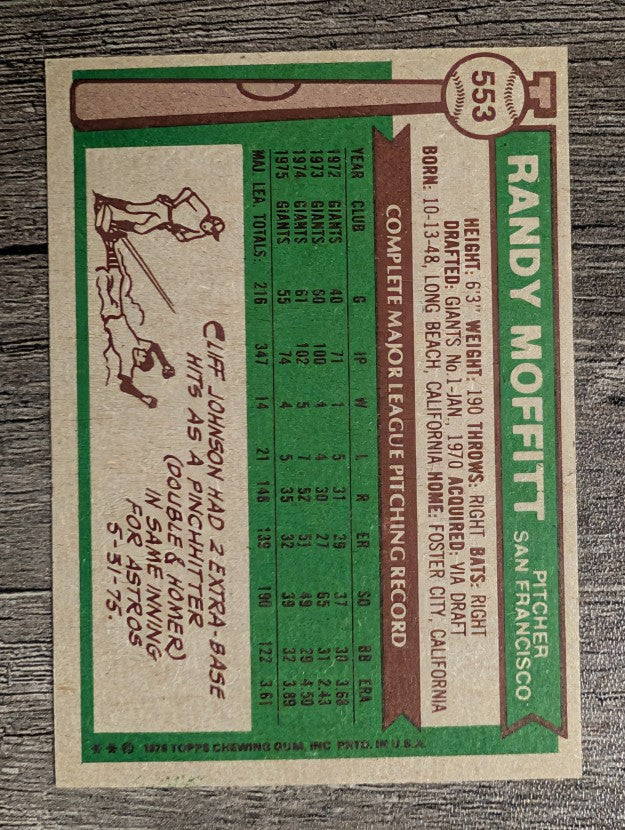 553
RANDY MOFFITT
PITCHER
SAN FRANCISCO
HEIGHT: 6'3" WEIGHT: 190 THROWS: RIGHT BATS: RIGHT
DRAFTED: GIANTS No. 1-JAN, 1970 ACQUIRED: VIA DRAFT
BORN: 10-13-48, LONG BEACH, CALIFORNIA HOME: FOSTER CITY, CALIFORNIA
COMPLETE MAJOR LEAGUE PITCHING RECORD
YEAR CLUB G IP W L R ER SO BB ERA
1972 GIANTS 40 71 1 5 31 29 37 30 3.68
1973 GIANTS 60 100 4 4 30 27 65 31 2.43
1974 GIANTS 61 102 5 7 52 51 49 29 4.50
1975 GIANTS 55 74 4 5 35 32 39 32 3.89
MAJ. LEA. TOTALS: 216 347 14 21 148 139 190 122 3.61
CLIFF JOHNSON HAD 2 EXTRA-BASE
HITS AS A PINCHHITTER
(DOUBLE & HOMER)
IN SAME INNING
FOR ASTROS
5-31-75.
★★© 1976 TOPPS CHEWING GUM, INC. PRTD. IN U.S.A.